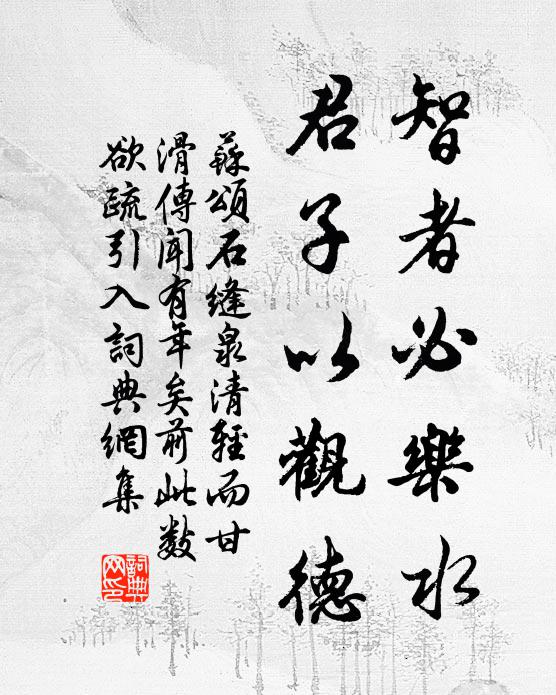 智者必樂水
君子以觀德
蘇頌石縫泉清輕而甘
滑傳聞有年矣前此数
欲疏引入詞典網集
詞典网印